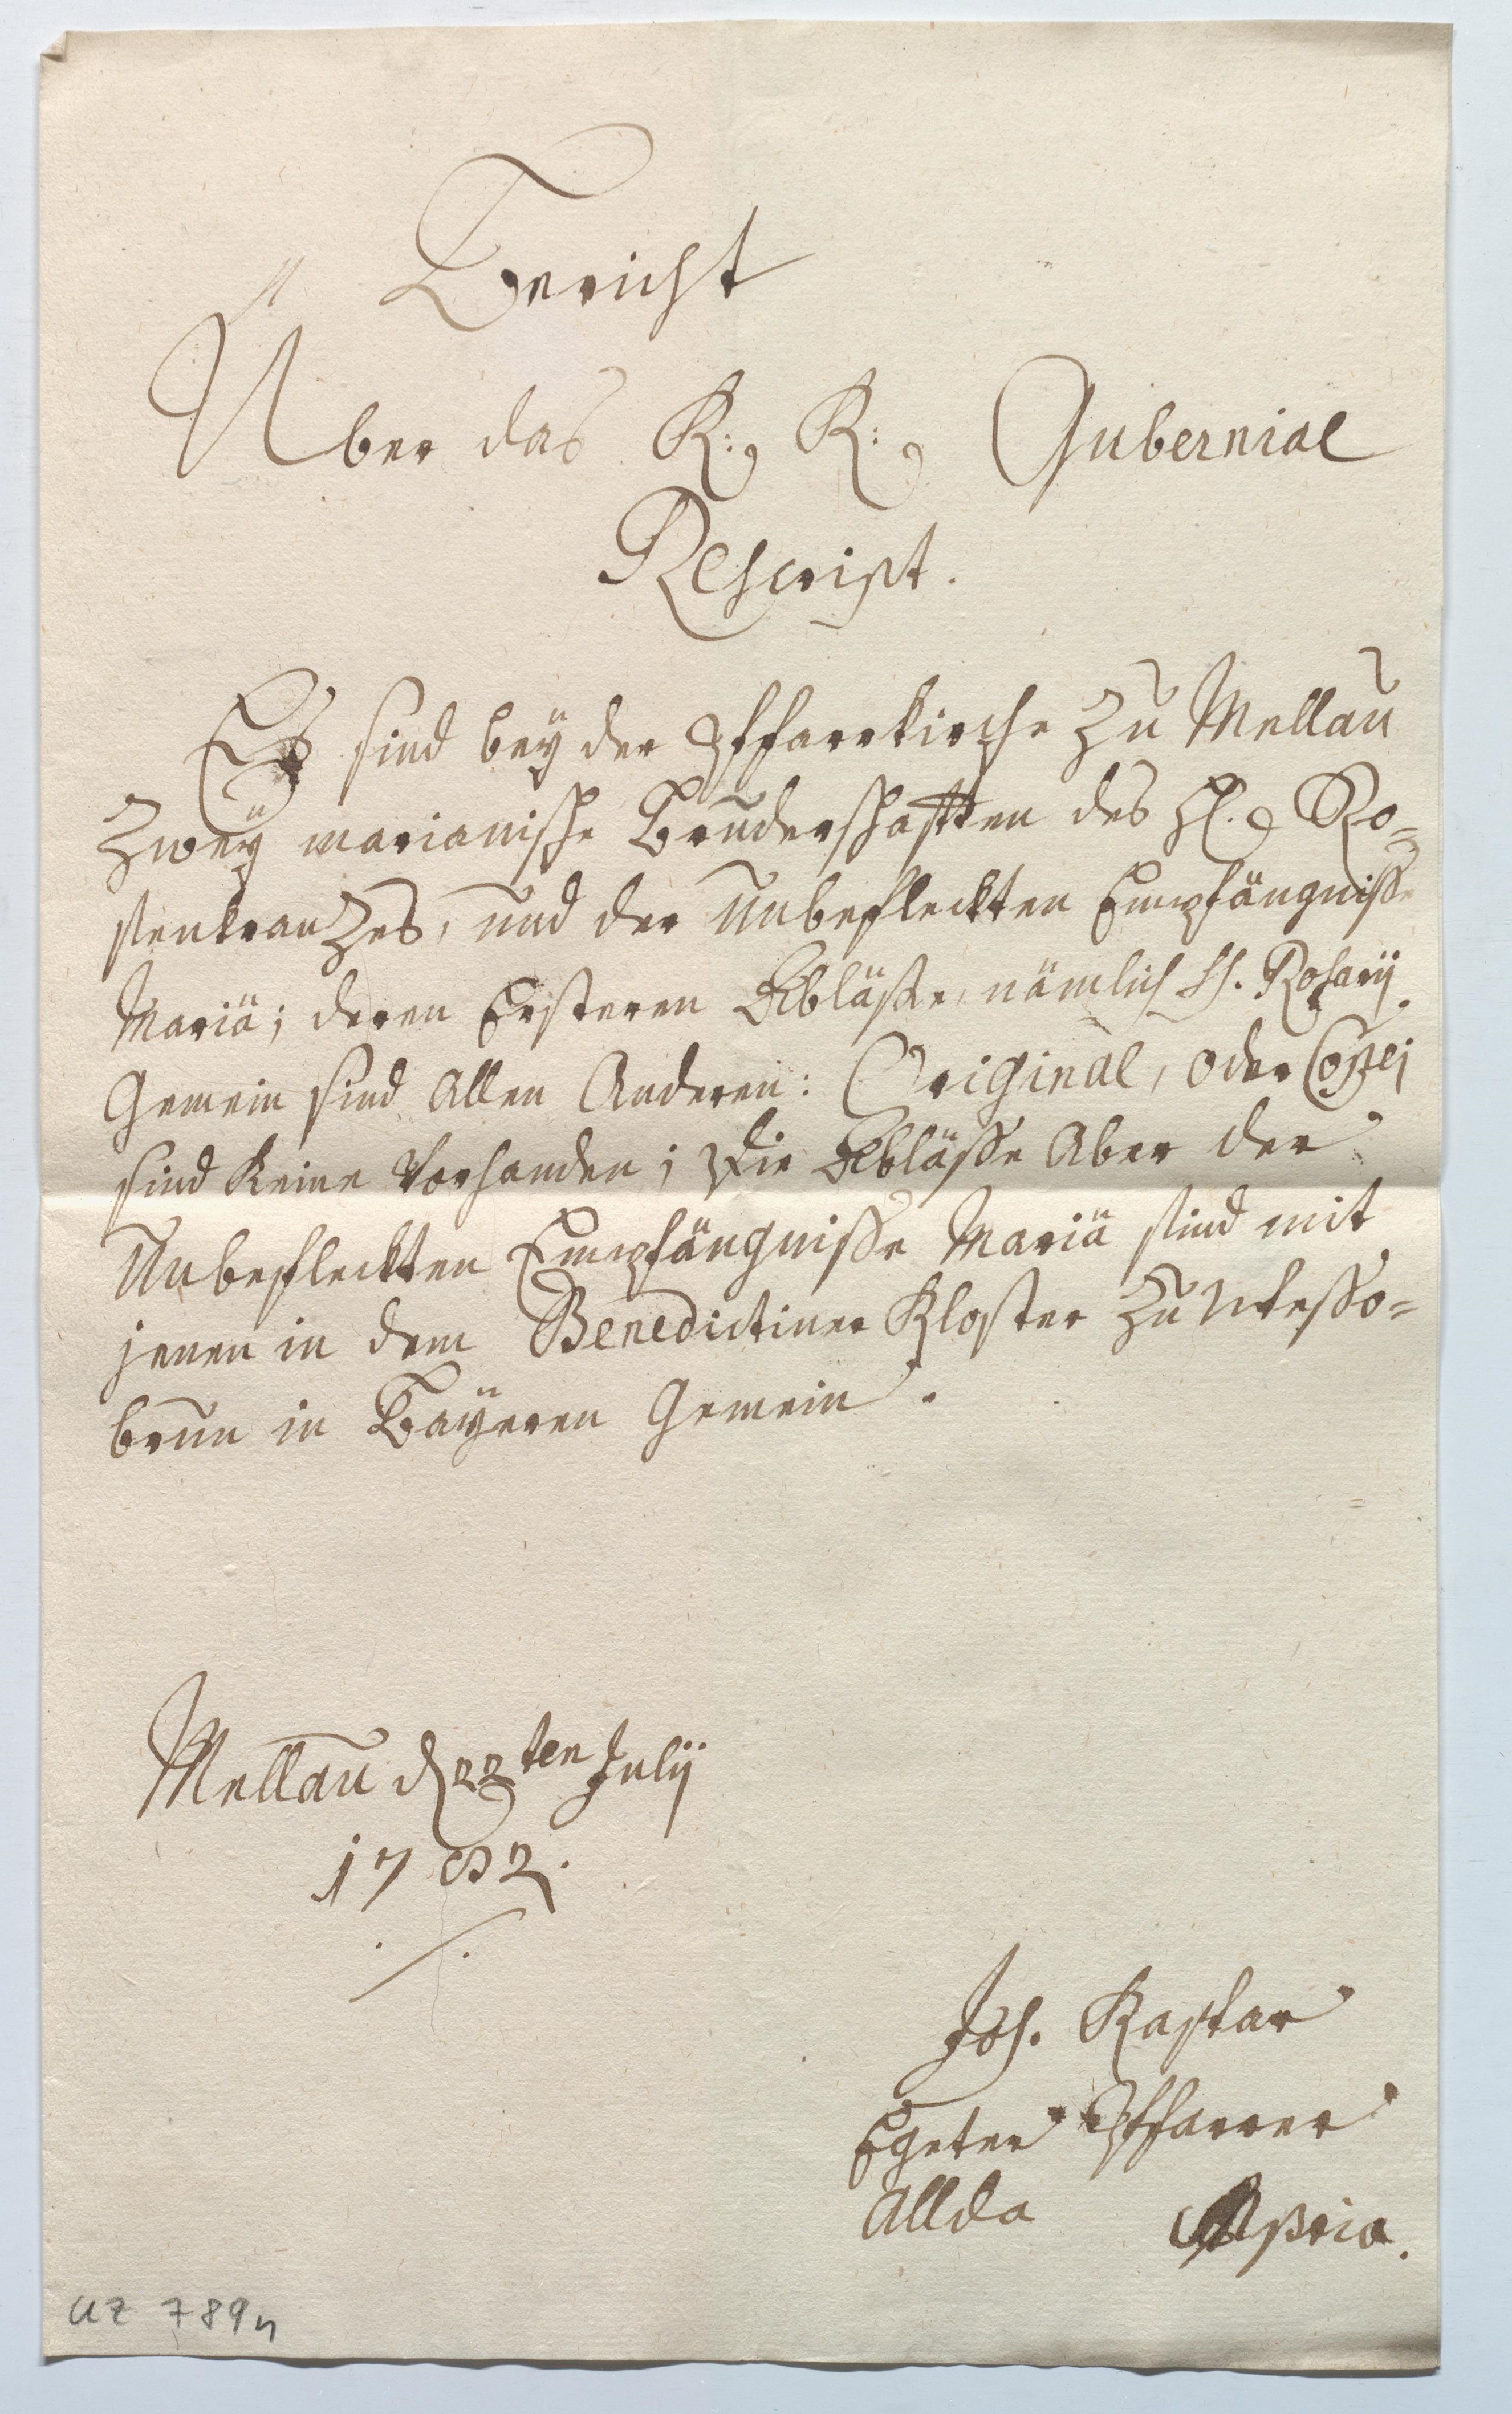 Bericht
Über das K: K: Gubernial
Rescript.
Es sind beÿ der Pffarrkirche zu Mellau
zweÿ marianische Bruderschaftten des Hl. Ro=
senkranzes, und der Unbefleckten Empfängnisse
Mariä; deren Ersteren Abläße, nämlich SS. Rosarij
Gemein sind Allen Anderen: Original, oder Copej
sind Keine Vorhanden; Die Abläße Aber der
Unbefleckten Empfängnisse Mariä sind mit
jenen in dem Benedictiner Kloster zu Wesso=
brun in Baÿeren Gemein.
Mellau d 22ten Julij
1782.
Jos. Kaspar
Egeter Pffarrer
Allda Mpria.
UZ 789n